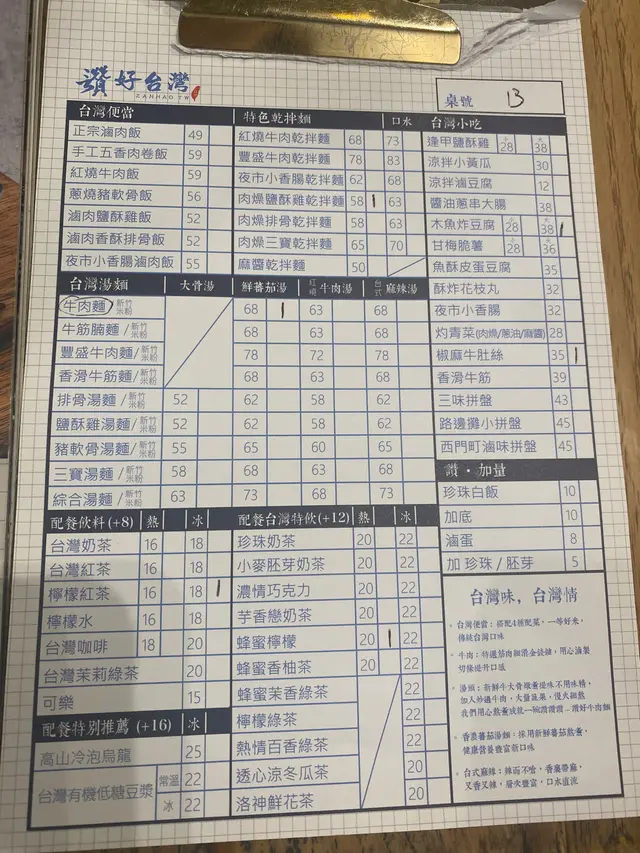 讚好台灣
ZANHAO TW
桌號 13
台灣便當
正宗滷肉飯 49
手工五香肉卷飯 59
紅燒牛肉飯 59
蔥燒豬軟骨飯 56
滷肉鹽酥雞飯 52
滷肉香酥排骨飯 52
夜市小香腸滷肉飯 55
特色乾拌麵 口水
紅燒牛肉乾拌麵 68 73
豐盛牛肉乾拌麵 78 83
夜市小香腸乾拌麵 62 68
肉燥鹽酥雞乾拌麵 58 63
肉燥排骨乾拌麵 58 63
肉燥三寶乾拌麵 65 70
麻醬乾拌麵 50
台灣小吃
逢甲鹽酥雞 小28 大38
涼拌小黃瓜 30
涼拌滷豆腐 12
醬油蔥串大腸 38
木魚炸豆腐 小28 大38
甘梅脆薯 小28 大36
魚酥皮蛋豆腐 35
酥炸花枝丸 32
夜市小香腸 32
灼青菜(肉燥/蔥油/麻醬) 28
椒麻牛肚絲 35
香滑牛筋 39
三味拼盤 43
路邊攤小拼盤 45
西門町滷味拼盤 45
台灣湯麵 大骨湯 鮮蕃茄湯 紅燒牛肉湯 台式麻辣湯
牛肉麵/新竹米粉 68 63 68
牛筋腩麵/新竹米粉 68 63 68
豐盛牛肉麵/新竹米粉 78 72 78
香滑牛筋麵/新竹米粉 68 63 68
排骨湯麵/新竹米粉 52 62 58 62
鹽酥雞湯麵/新竹米粉 52 62 58 62
豬軟骨湯麵/新竹米粉 55 65 60 65
三寶湯麵/新竹米粉 58 68 63 68
綜合湯麵/新竹米粉 63 73 68 73
讚·加量
珍珠白飯 10
加底 10
滷蛋 8
加 珍珠/胚芽 5
配餐飲料 (+8) 熱 冰
台灣奶茶 16 18
台灣紅茶 16 18
檸檬紅茶 16 18
檸檬水 16 18
台灣咖啡 18 20
台灣茉莉綠茶 20
可樂 15
配餐特別推薦 (+16) 冰
高山冷泡烏龍 25
台灣有機低糖豆漿 常溫 22
冰 22
配餐台灣特飲(+12) 熱 冰
珍珠奶茶 20 22
小麥胚芽奶茶 20 22
濃情巧克力 20 22
芋香戀奶茶 20 22
蜂蜜檸檬 20 22
蜂蜜香柚茶 20 22
蜂蜜茉香綠茶 22
檸檬綠茶 22
熱情百香綠茶 22
透心涼冬瓜茶 20
洛神鮮花茶 20
台灣味，台灣情
台灣便當：搭配4種配菜，一等好米，
傳統台灣口味
牛肉：特選筋肉
切條提升口感
湯頭：新鮮牛大骨
加入炒過牛肉，大量蔬果，慢火細熬
香濃蕃茄湯麵：採用新鮮蕃茄熬煮，
健康營養豐富新口味
台式麻辣：辣而不嗆，香裏帶麻，
又香又辣，層次豐富，口水直流